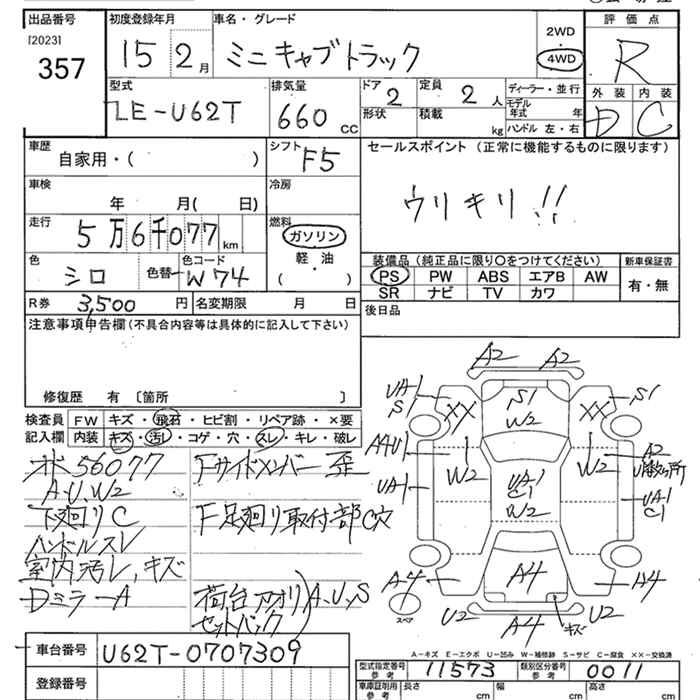 出品番号 初度登録年月 車名・グレード 評価点
[2023] 15 2月 ミニキャブトラック 2WD 4WD R
357
型式 排気量 ドア 2 定員 2人 ディーラー・並行 外装 内装
LE-U62T 660 CC 形状 積載 kg モデル年式 年 D C
ハンドル 左・右
車歴 シフト セールスポイント (正常に機能するものに限ります)
自家用・( ) F5
車検 冷房 ウリキリ!!
年 月( 日)
走行 燃料
5万6千077 km ガソリン
色 色コード 軽・油 装備品 (純正品に限り○をつけてください) 新車保証書
シロ 色替 W74 ( ) PS PW ABS エアB AW 有・無
R券 3,500円 名変期限 月 日 SR ナビ TV カワ
注意事項申告欄(不具合内容等は具体的に記入して下さい) 後日品
修復歴 有 〔箇所 〕
検査員 FW キズ・飛石・ヒビ割・リペア跡・×要
記入欄 内装 キズ・汚レ・コゲ・穴・スレ・キレ・破レ
A2 A2
UA1 S1 S1
S1 XX W2 XX
A4U1 W2 W2 A2
UA1 UA1 C1 W2 UA1 C1
A4 A4 A4
スペア U2 A4 キズ U2
56077 Fサイドメンバー歪
A.U.W2
下廻りC F足廻り取付部C穴
ハンドルスレ
室内汚レ,キズ
DミラーA 荷台アオリ A,U,S
セットバック
車台番号 U62T-0707309
A-キズ E-エクボ U-凹み W-補修跡 S-サビ C-腐食 XX-交換済
登録番号 型式指定番号 参考 11573 類別区分番号 参考 0011
車庫証明用 参考 長さ cm 幅 cm 高さ cm